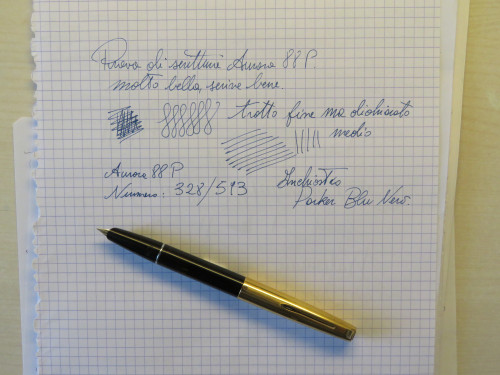 Prova di scrittura Aurora 88 P
molto bella, scrive bene.
tratto fine ma dichiarato
medio
Aurora 88 P
Numero: 328/513
Inchiostro
Parker Blu Nero.